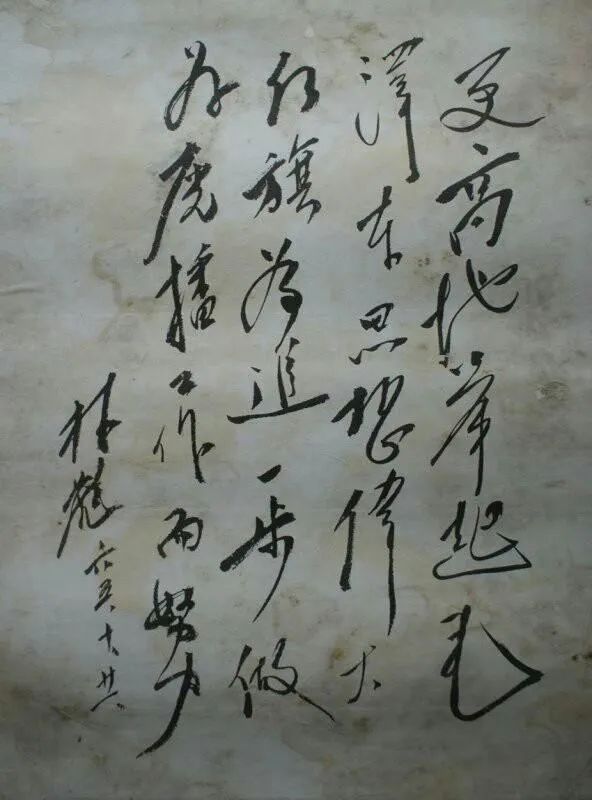 更高地举起毛
澤东思想偉大
红旗為進一步做
好廣播工作而努力
林彪 六五、十、廿